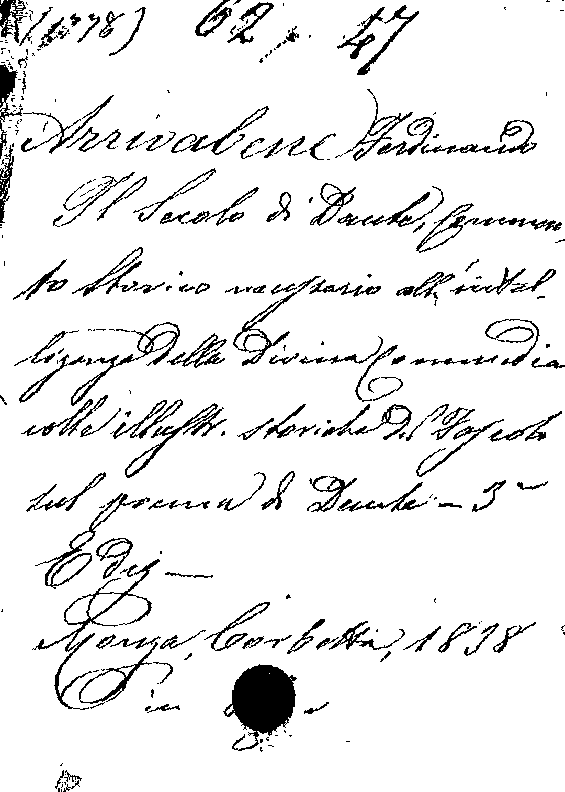 (1778) 62. 47
Arrivabene Ferdinando
Il Secolo di Dante, Commen-
to storico necessario all'intel-
ligenza della Divina Commedia
colle illustr. storiche del Foscolo
sul poema di Dante - 3ª
Ediz—
Monza, Corbetta, 1838
in